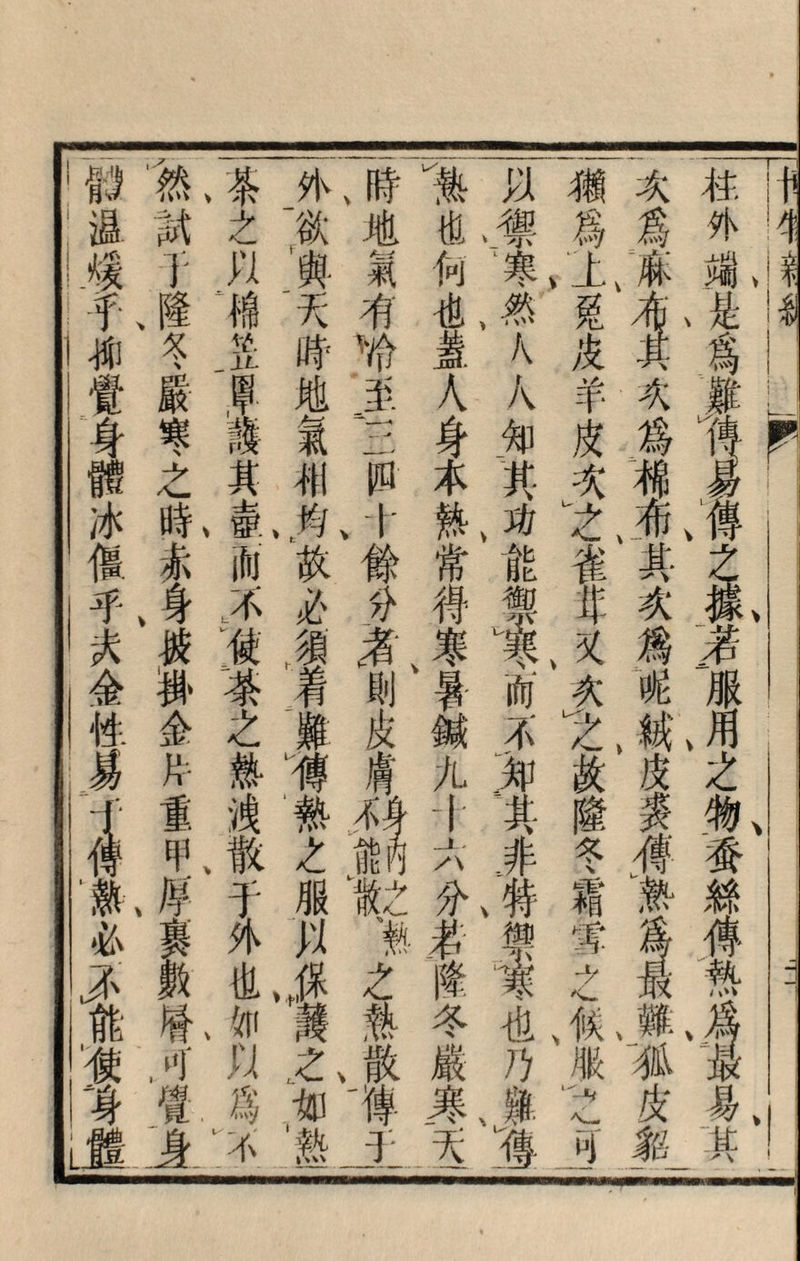 博物新編
柱外端是爲難傳易傳之據若服用之物蚕絲傳熱爲最易其
次爲麻布其次爲棉布其次爲呢絨皮裘傳熱爲最難狐皮貂
獺爲上兎皮羊皮次之雀茸又次之故隆冬霜雪之候服之可
以禦寒然人人知其功能禦寒而不知其非特禦寒也乃難傳
熱也何也蓋人身本熱常得寒暑鍼九十六分若隆冬嚴寒天
時地氣有冷至三四十餘分者則皮膚身內之熱不能散之熱散傳于
外欲與天時地氣相均故必須着難傳熱之服以保護之如熱
茶之以棉笠罩護其壺而不使茶之熱洩散于外也如以爲不
然試于隆冬嚴寒之時赤身披掛金片重甲厚裹數層可覺身
體温煖乎抑覺身體冰僵乎夫金性易于傳熱必不能使身體
二